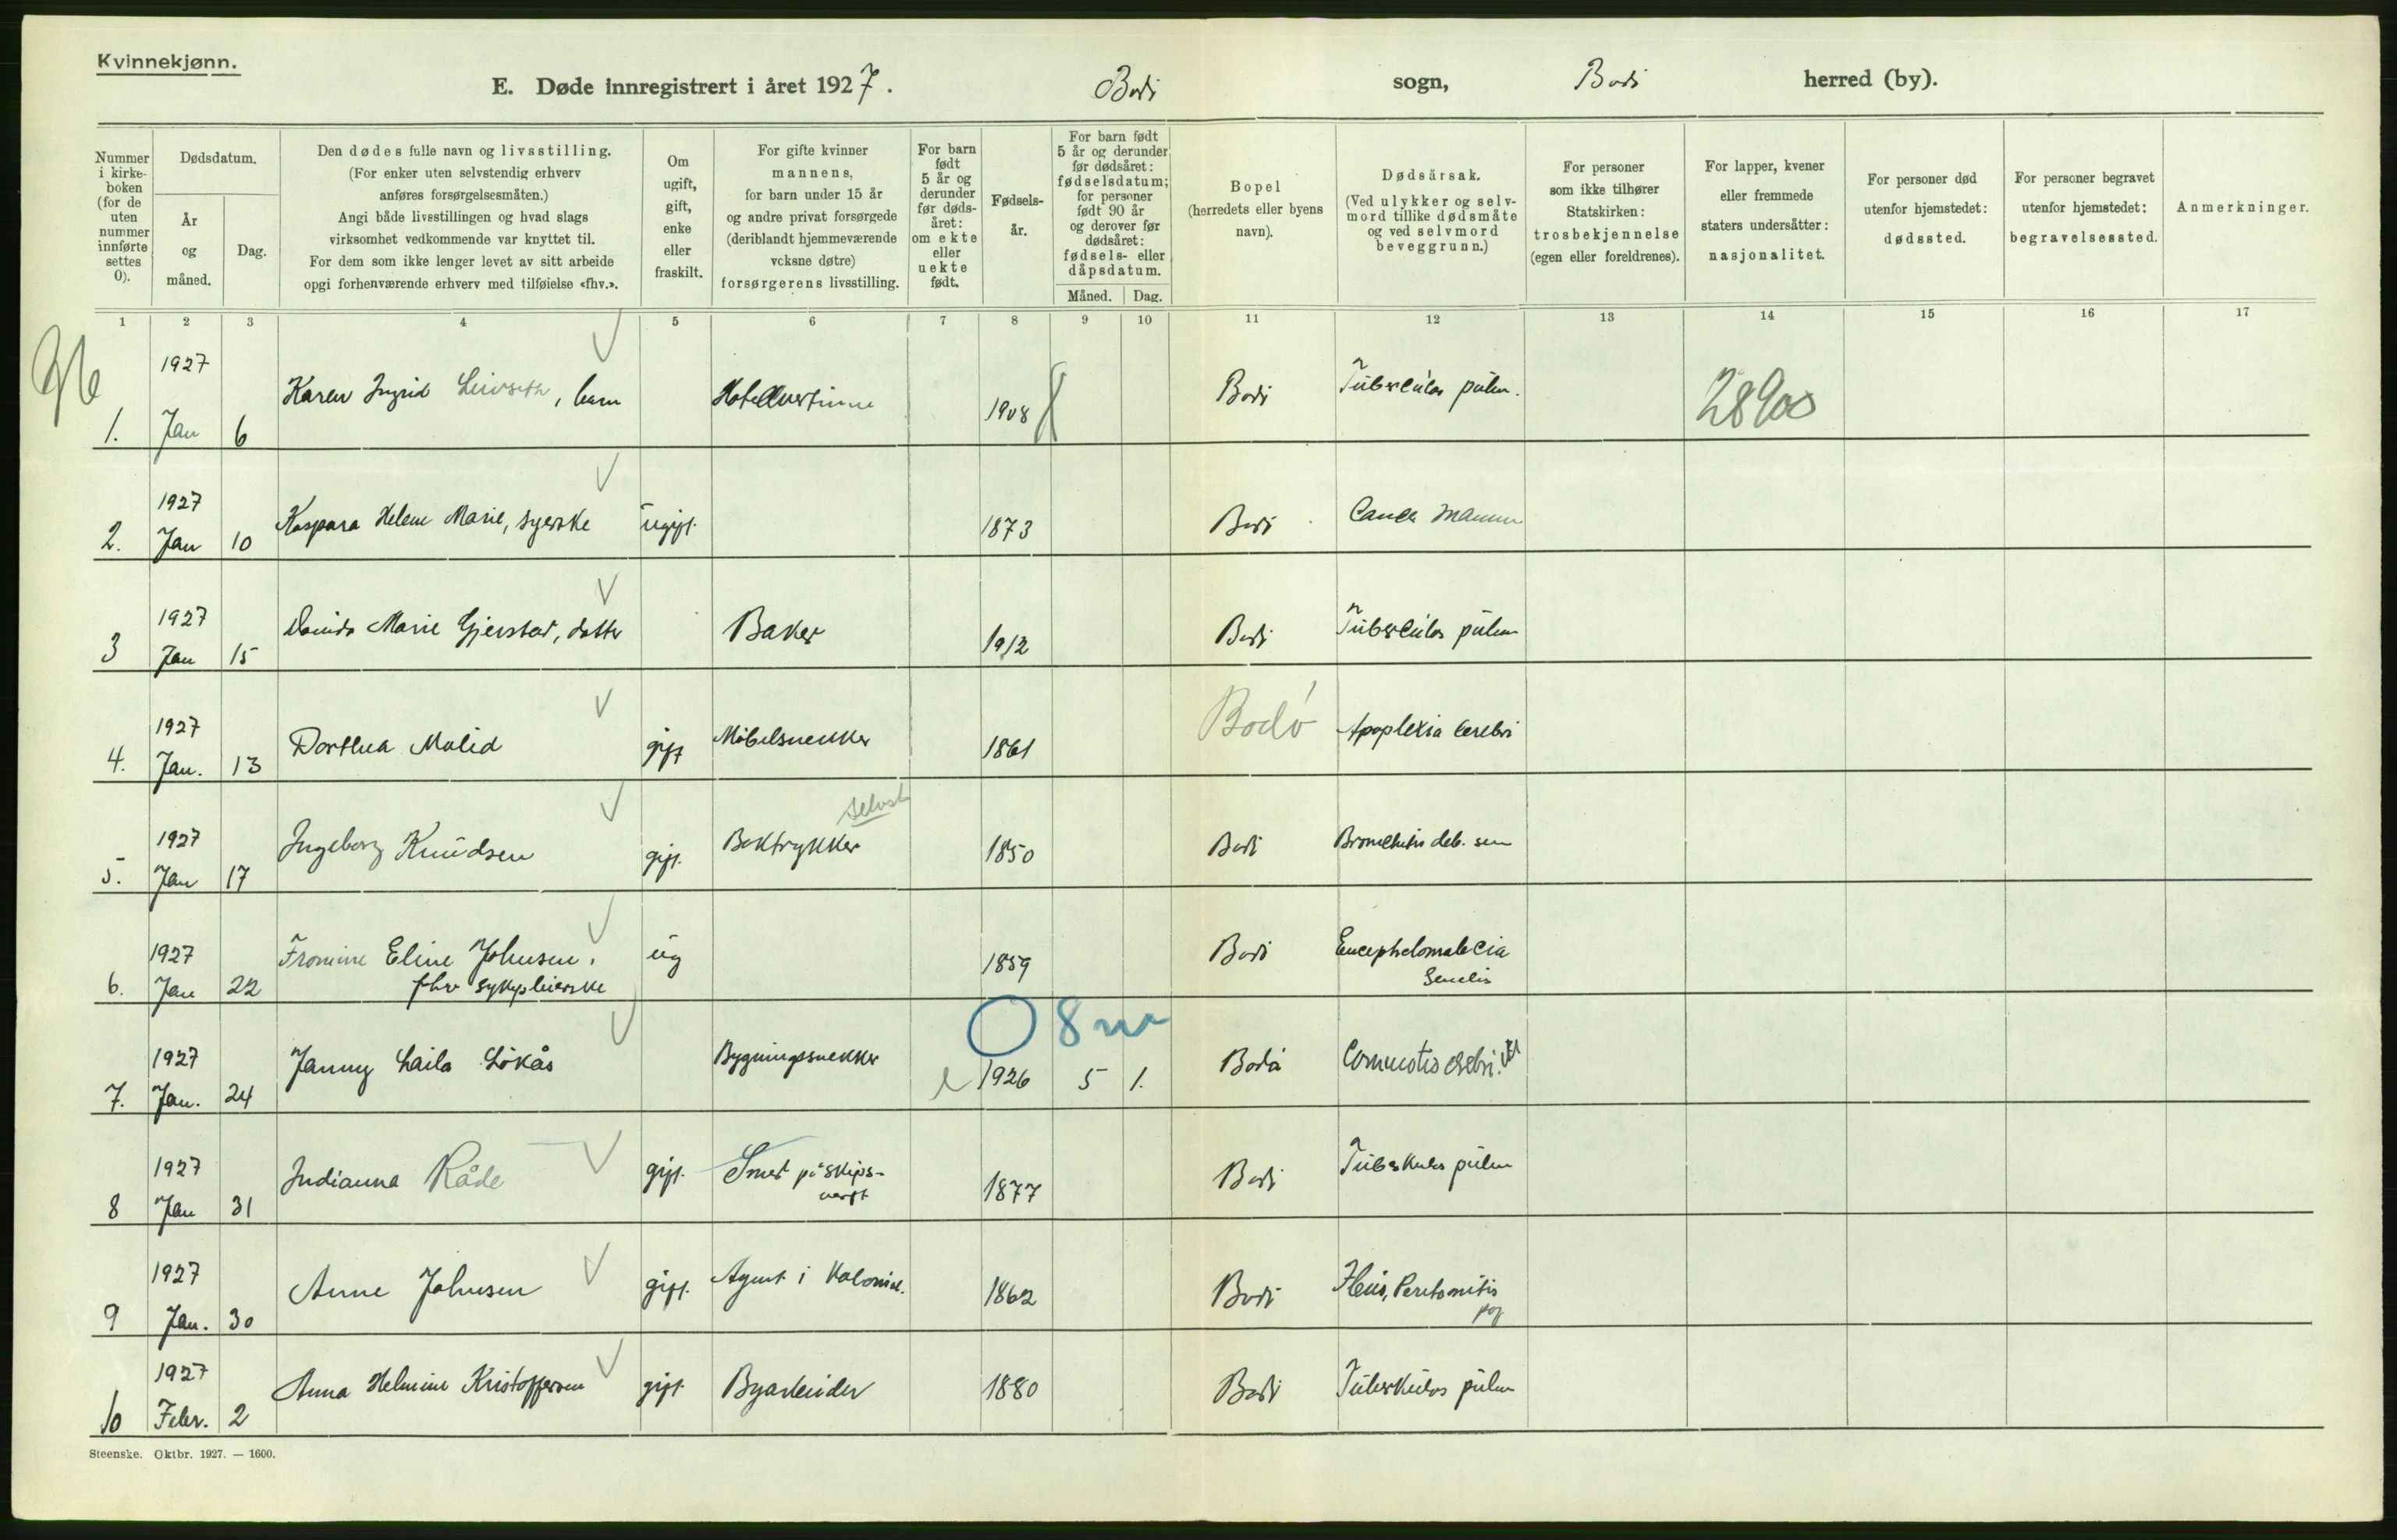 Kvinnekjønn.
E. Døde innregistrert i året 1927. Bodø sogn, Bodø herred (by).
Nummer i kirke-boken (for de uten nummer innførte settes 0).
Dødsdatum.
År og måned.
Dag.
Den dødes fulle navn og livsstilling.
(For enker uten selvstendig erhverv
anføres forsørgelsesmåten.)
Angi både livsstillingen og hvad slags
virksomhet vedkommende var knyttet til.
For dem som ikke lenger levet av sitt arbeide
opgi forhenværende erhverv med tilføielse «fhv.».
Om ugift, gift, enke eller fraskilt.
For gifte kvinner
mannens,
for barn under 15 år
og andre privat forsørgede
(deriblandt hjemmeværende
voksne døtre)
forsørgerens livsstilling.
For barn født 5 år og derunder før døds-året: om ekte eller uekte født.
Fødsels-år.
For barn født
5 år og derunder
før dødsåret:
fødselsdatum;
for personer
født 90 år
og derover før
dødsåret:
fødsels- eller
dåpsdatum.
Måned. Dag.
Bopel
(herredets eller byens
navn).
Dødsårsak.
(Ved ulykker og selv-
mord tillike dødsmåte
og ved selvmord
beveggrunn.)
For personer
som ikke tilhører
Statskirken:
trosbekjennelse
(egen eller foreldrenes).
For lapper, kvener
eller fremmede
staters undersåtter:
nasjonalitet.
For personer død
utenfor hjemstedet:
dødssted.
For personer begravet
utenfor hjemstedet:
begravelsessted.
Anmerkninger.
1 2 3 4 5 6 7 8 9 10 11 12 13 14 15 16 17
1. 1927 Jan 6 Karen Ingrid Leivseth, barn Hotellvertinne 1908 Bodø Tuberculos pulm. 28900
2. 1927 Jan 10 Kaspara Helene Marie, syerske ugift. 1873 Bodø Cancer mamm
3 1927 Jan 15 Davida Marie Gjerstad, datter Baker 1912 Bodø Tuberculos pulm
4. 1927 Jan. 13 Dorthea Molid gift Møbelsnekker 1861 Bodø Apoplexia cerebri
5. 1927 Jan 17 Ingeborg Knudsen gift. Boktrykker selvst 1850 Bodø Bronchitis deb. sen
6. 1927 Jan 22 Eline Johnsen, ug 1859 Bodø Encephalomalecia
fhv sykepleierske Senilis
O 8 m
7. 1927 Jan. 24 Janny Laila Løkås Bygningssnekker e 1926 5 1. Bodø Commotio cerebri.
8 1927 Jan 31 Indianna Råde gift. Smed på skips-
verft 1877 Bodø Tuberkulos pulm
9 1927 Jan. 30 Anne Johnsen gift. Agent i Kolonial. 1862 Bodø Ileus, Peritonitis
10 1927 Febr. 2 Anna Helmine Kristoffersen gift. Byarbeider 1880 Bodø Tuberkulos pulm
Steenske. Oktbr. 1927. — 1600.